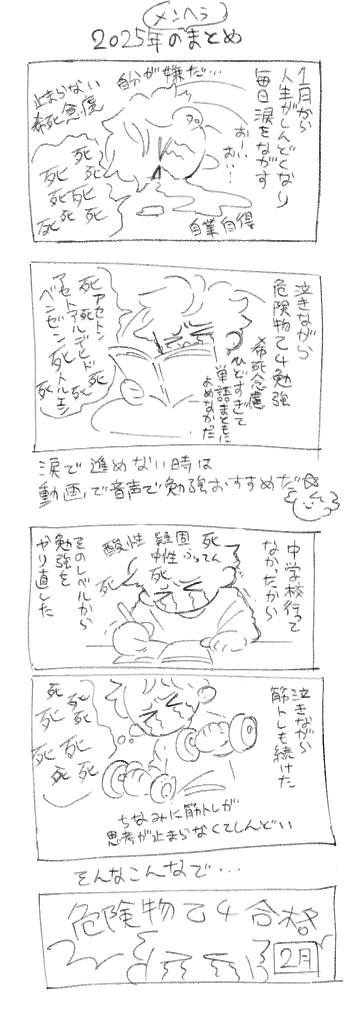 メンヘラ
2025年のまとめ
1月から
人生がしんどくなり
毎日涙をながす
自分が嫌だ…
止まらない
希死念慮
おーい
おい…
死
死 死
死 死
死 死 死
自業自得
泣きながら
危険物乙4勉強
希死念慮
ひどすぎて
単語まともに
よめなかった
死 アセトン 死
アセトアルデヒド 死
ベンゼン 死 トルエン
死 死
涙で進めない時は
動画で音声で勉強おすすめだヨ
中学校行って
なかったから
酸性 凝固 死
中性 ふってん
死 死
そのレベルから
勉強を
やり直した
泣きながら
筋トレも続けた
死
死 死
死 死
死 死
死 死
ちなみに筋トレが
思考が止まらなくてしんどい
そんなこんなで…
危険物乙4合格
2月